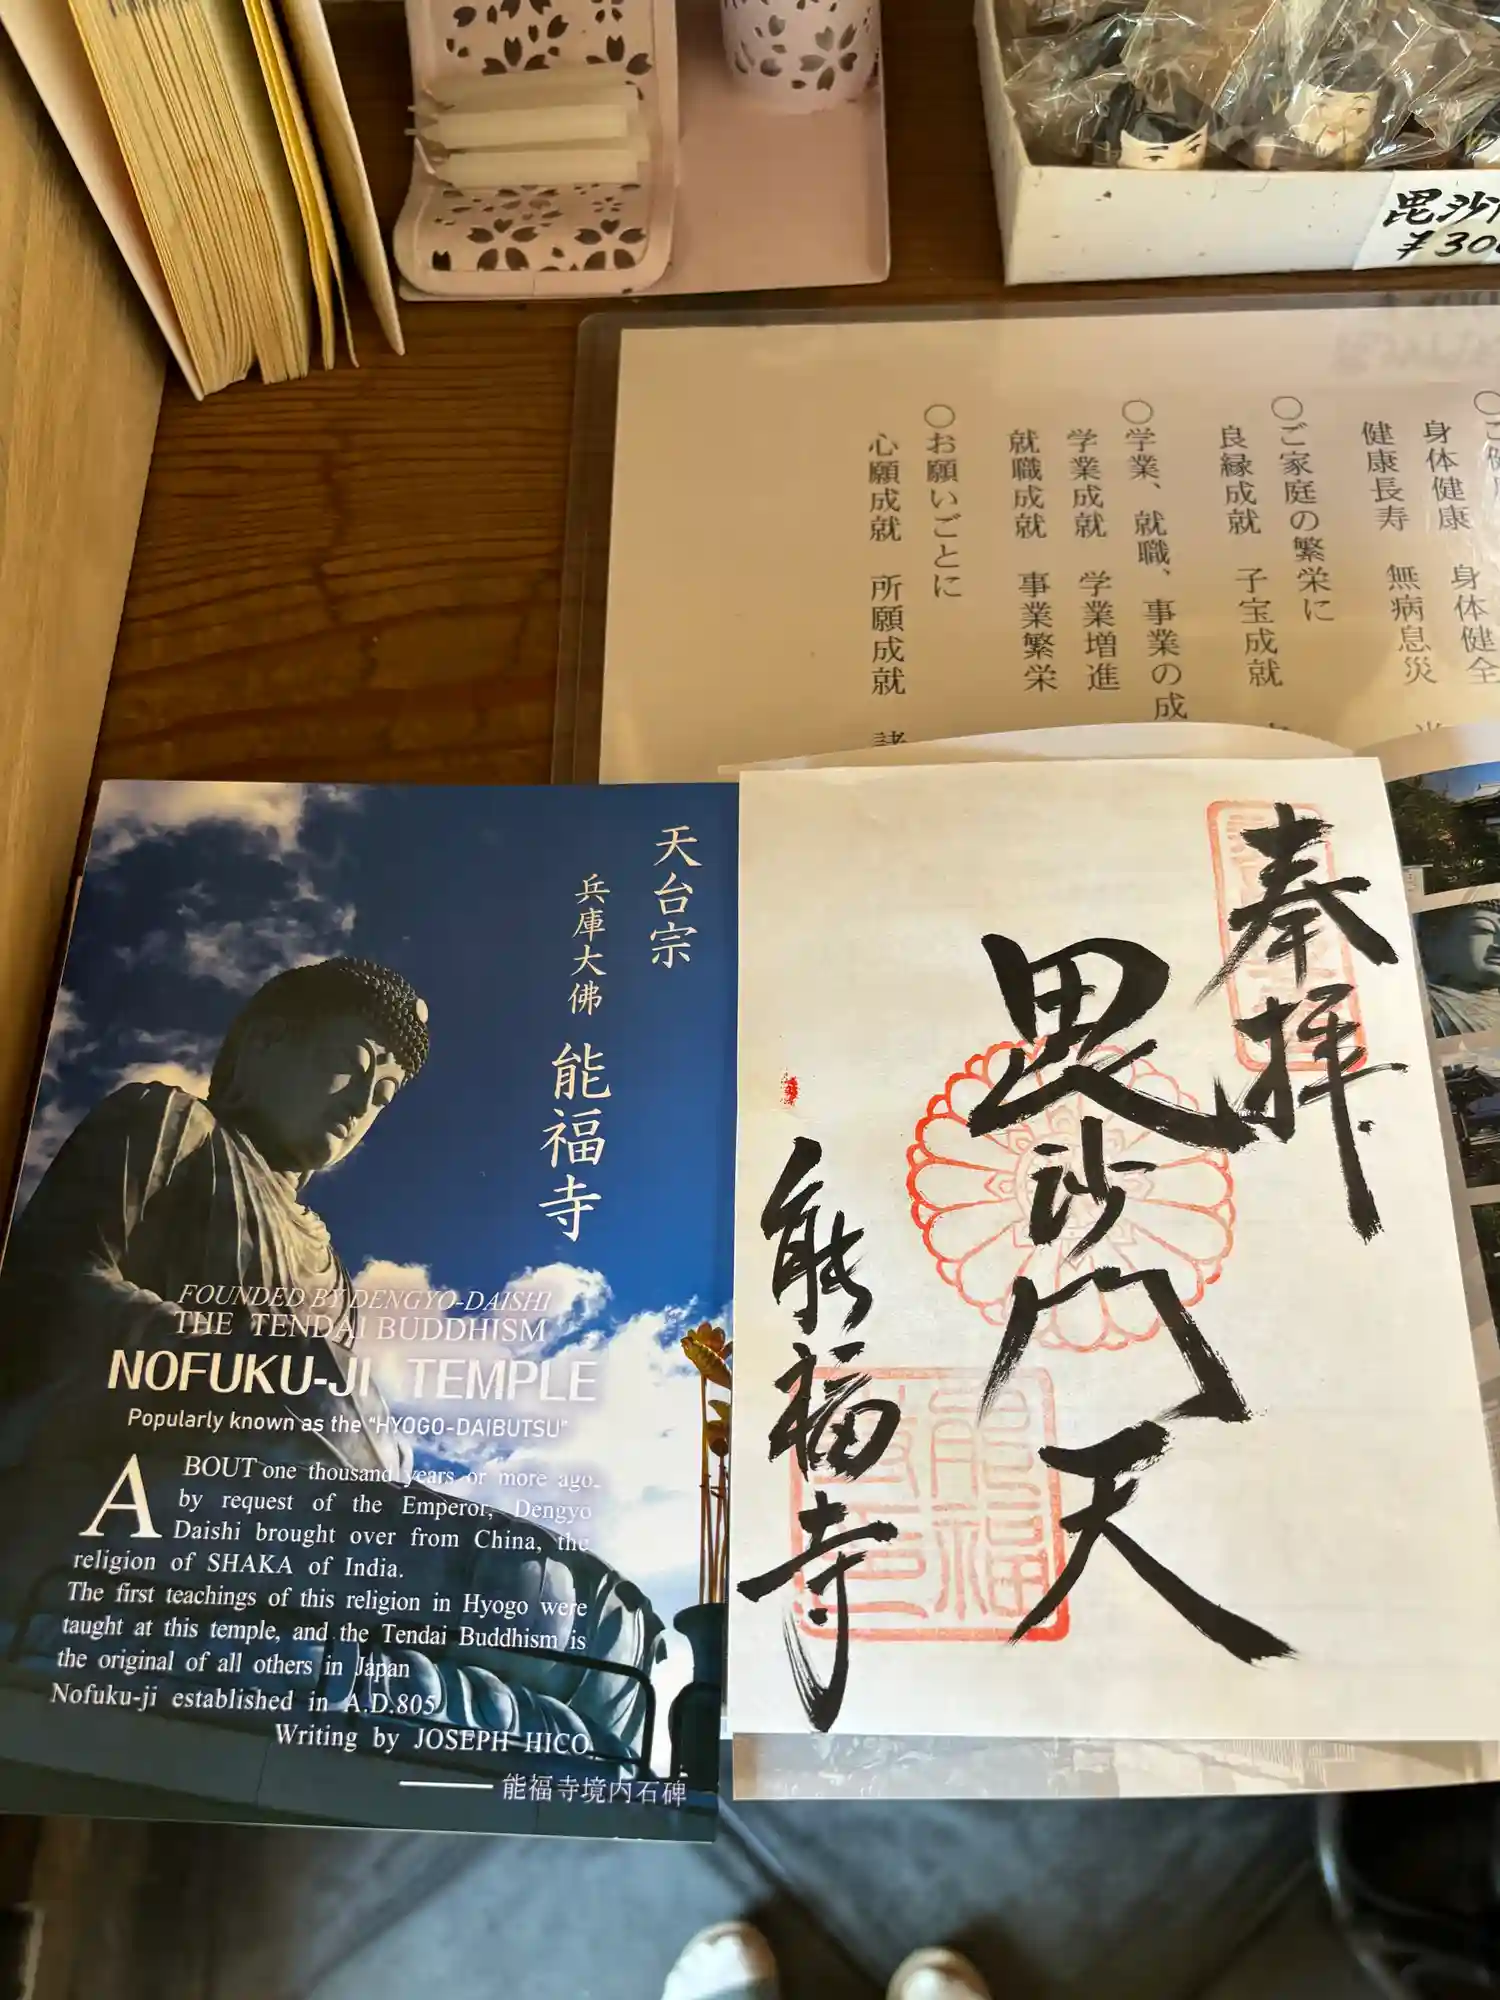 毘沙
¥300
身体健康 身体健全
健康長寿 無病息災
〇ご家庭の繁栄に
良縁成就 子宝成就
〇学業、就職、事業の成
学業成就 学業増進
就職成就 事業繁栄
〇お願いごとに
心願成就 所願成就 諸
天台宗
兵庫大佛
能福寺
FOUNDED BY DENGYO-DAISHI
THE TENDAI BUDDHISM
NOFUKU-JI TEMPLE
Popularly known as the "HYOGO-DAIBUTSU"
ABOUT one thousand years or more ago.
by request of the Emperor, Dengyo
Daishi brought over from China, the
religion of SHAKA of India.
The first teachings of this religion in Hyogo were
taught at this temple, and the Tendai Buddhism is
the original of all others in Japan
Nofuku-ji established in A.D.805
Writing by JOSEPH HICO
能福寺境内石碑
奉拝
毘沙門天
能福寺